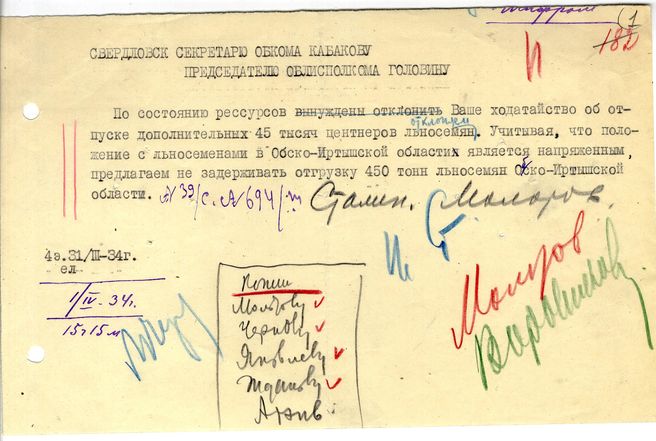 шифром
(1
182
п
СВЕРДЛОВСК СЕКРЕТАРЮ ОБКОМА КАБАКОВУ
ПРЕДСЕДАТЕЛЮ ОБЛИСПОЛКОМА ГОЛОВИНУ
По состоянию рессурсов вынуждены отклонить Ваше ходатайство об от-
отклоняем
пуске дополнительных 45 тысяч центнеров льносемян. Учитывая, что поло-
жение с льносеменами в Обско-Иртышской областих является напряженным,
предлагаем не задерживать отгрузку 450 тонн льносемян Обско-Иртышской
области. №39/с. №694/ш
Сталин. Молотов.
4э.31/III-34г.
ел
1/IV-34г.
15ч15м
Копии
Молотову
Чернову
Яковлеву
Жданову
Архив
Молотов
Ворошилов